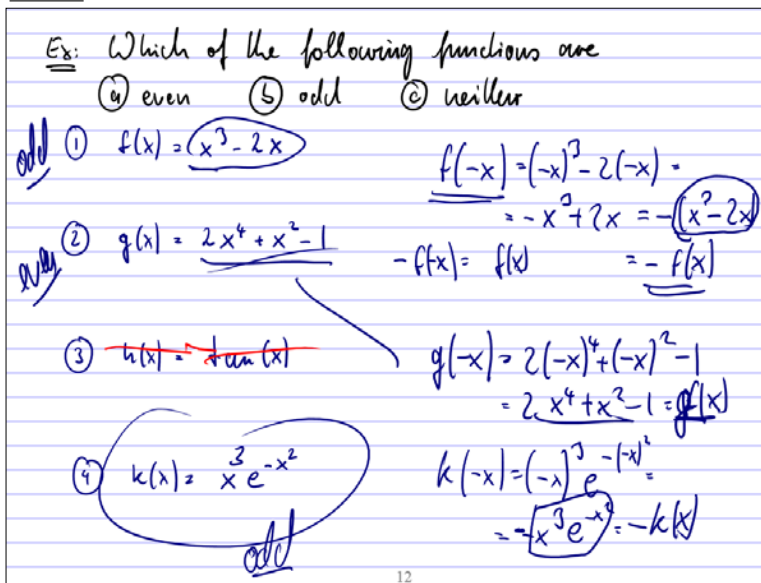 Ex: Which of the following functions are
(a) even (b) odd (c) neither
odd (1) f(x) = x³ - 2x
f(-x) = (-x)³ - 2(-x) =
= -x³ + 2x = -(x³ - 2x)
even (2) g(x) = 2x⁴ + x² - 1
-f(-x) = f(x) = - f(x)
(3) h(x) = tan(x)
g(-x) = 2(-x)⁴ + (-x)² - 1
= 2x⁴ + x² - 1 = g(x)
(4) k(x) = x³ e^{-x²}
k(-x) = (-x)³ e^{-(-x)²} =
= -x³ e^{-x²} = -k(x)
odd
12